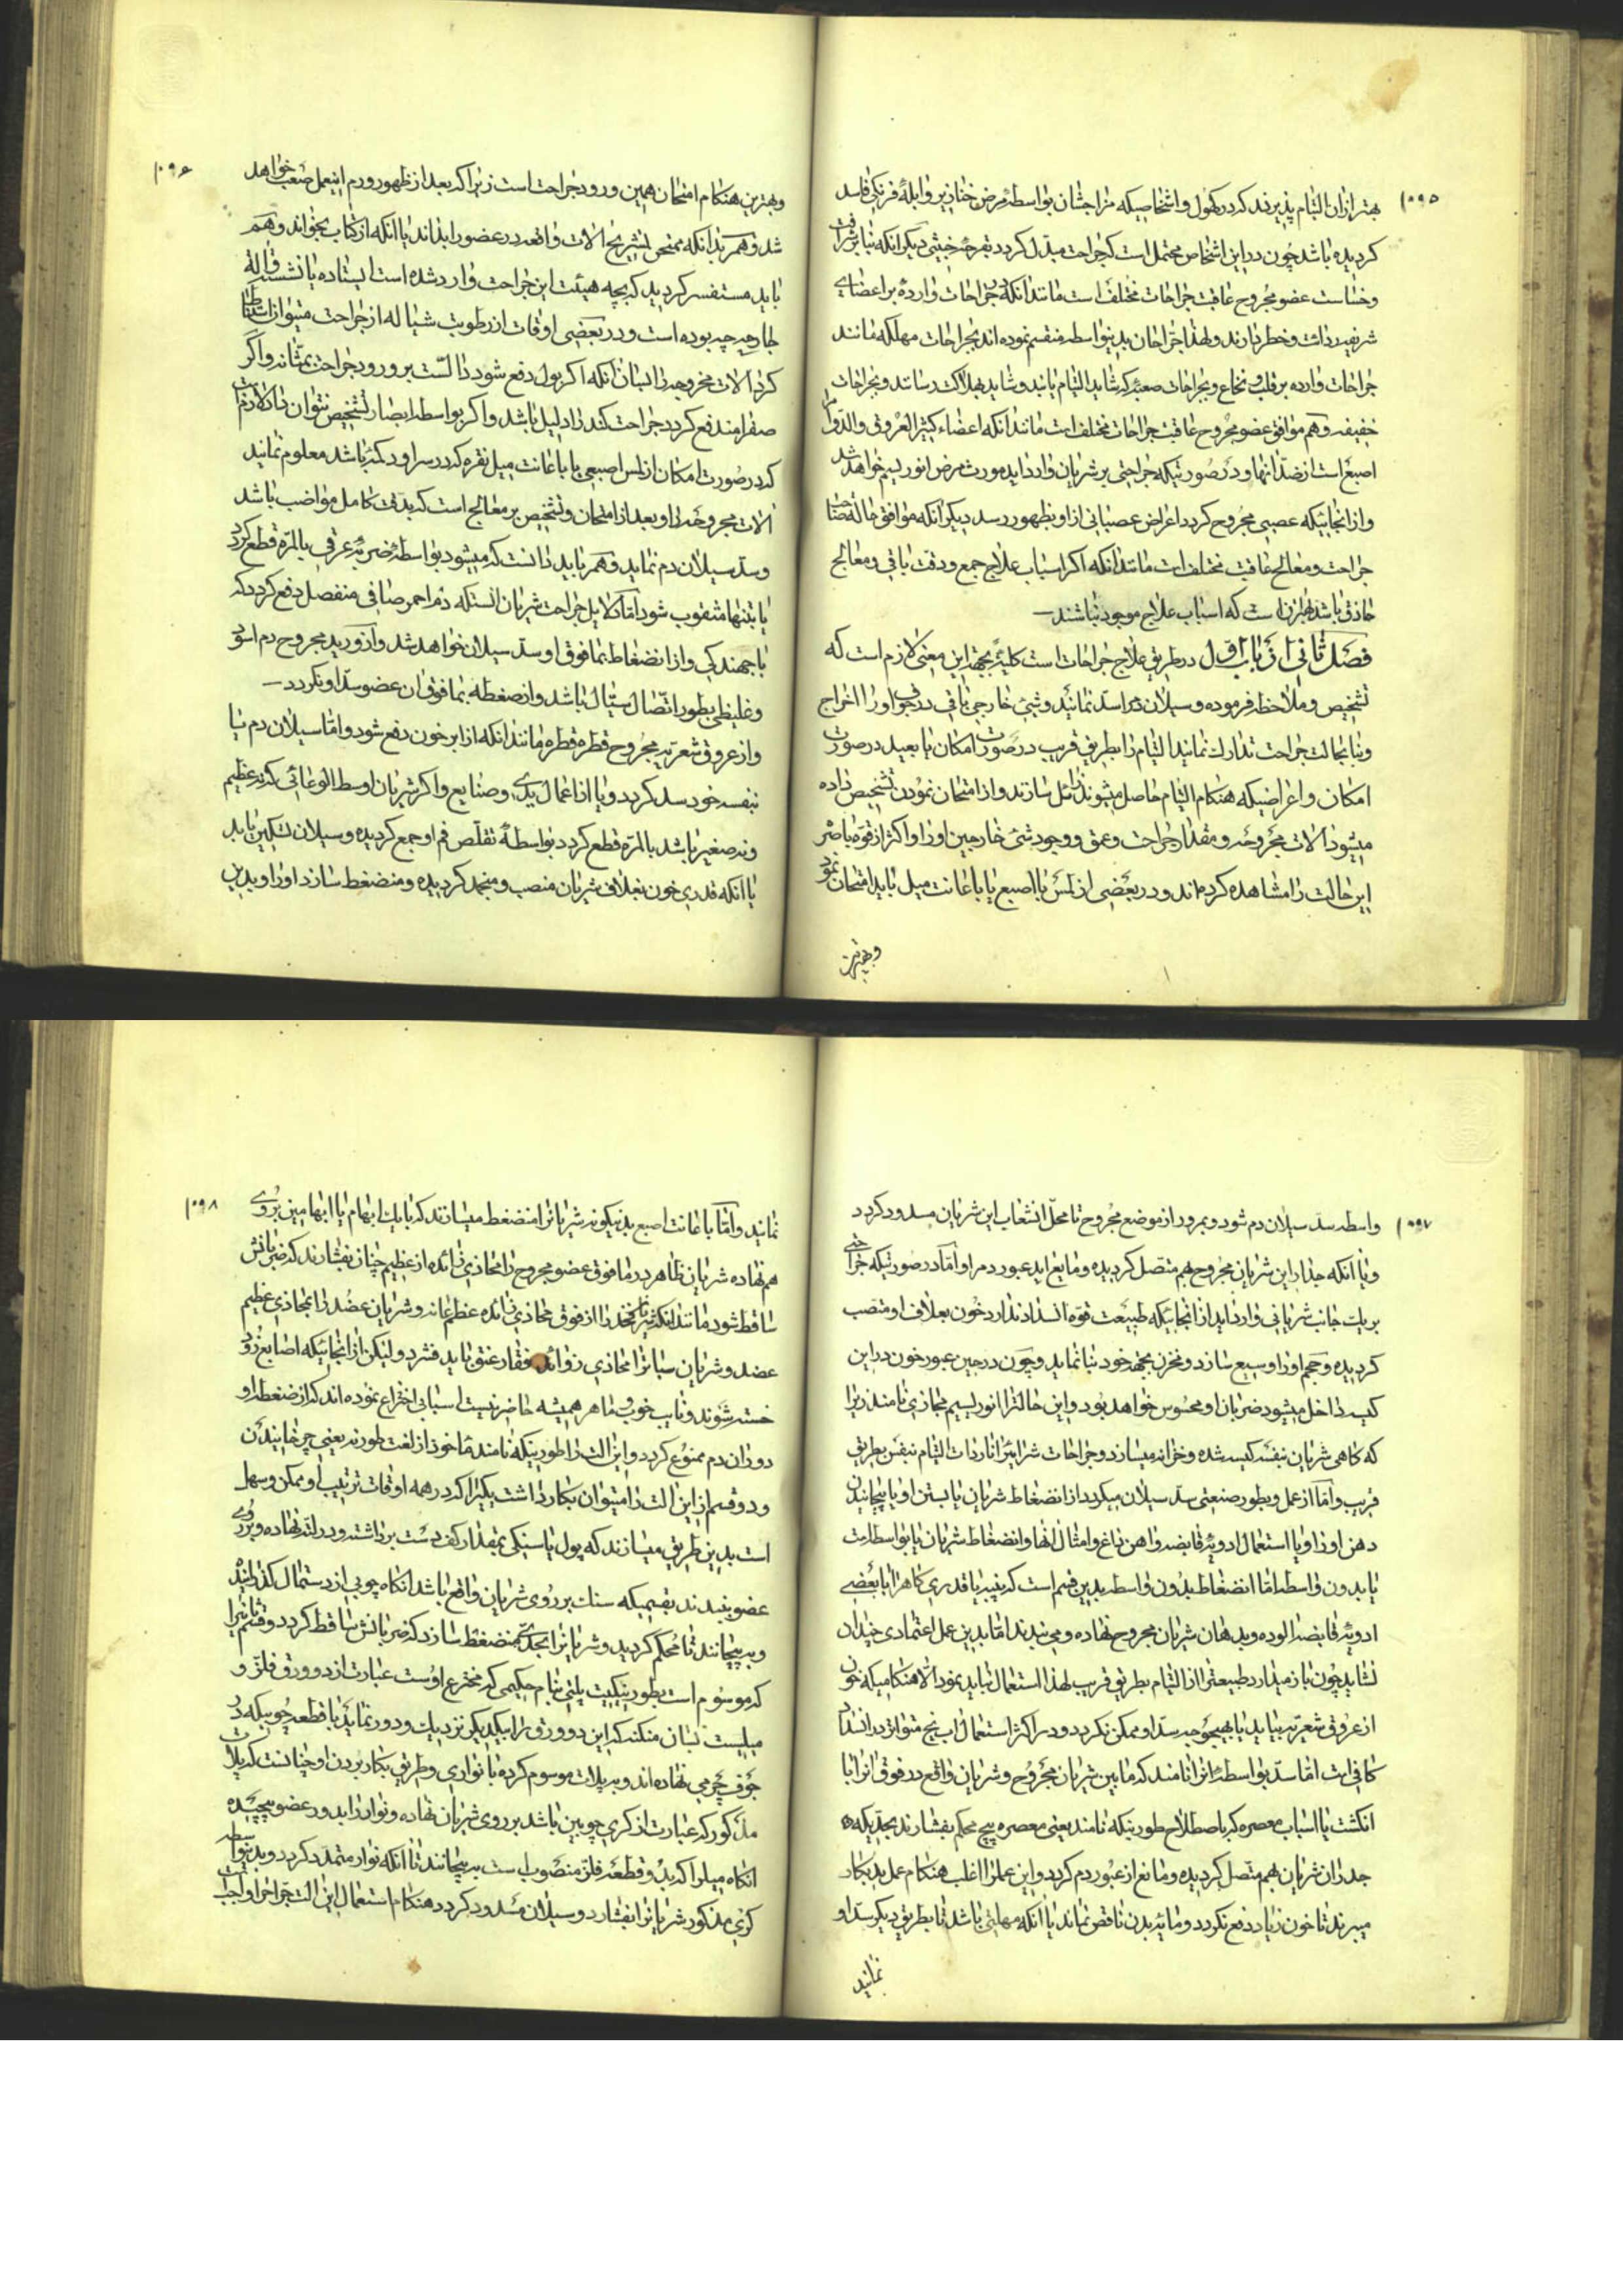 ۱۰۹۵
بهتر از ان التیام پذیرند که در کهول و اشخاصیکه مزاجشان بواسطهٔ مرض خنازیر و ابلهٔ فرنکی فاسد
کردیده باشد چون در این اشخاص محتمل است که جراحت مبدّل کردد بقرحهٔ خبیثی دیکر انکه بنا بر شرافت
و خساست عضو مجروح عاقبت جراحات مختلف است مانند انکه جراحات وارده بر اعضای
شریفه ردائت و خطر دارند و لهذا جراحان بدینواسطه منقسم نموده اند بجراحات مهلکه مانند
جراحات وارده بر قلب و نخاع و بجراحات صعبه که شاید التیام یابند و شاید بهلاکت رسانند و بجراحات
خفیفه و هم موافق عضو مجروح عاقبت جراحات مختلف است مانند انکه اعضاء کثیر العروق و الدّم را التیام
اصبغ است از ضدّ انها و در صورتیکه جراحتی بر شریان وارد اید مورث مرض انوریسم خواهد شد
و از انجائیکه عصبی مجروح کردد اعراض عصبانی از او بظهور رسد دیکر انکه موافق حالهٔ صاحب
جراحت و معالج عاقبت مختلف است مانند انکه اکر اسباب علاج جمع و دقت باقی و معالج
حاذق باشد بهتر از ان است که اسباب علاج موجود نباشند
فصل ثانی از باب اوّل در طریق علاج جراحات است کلیةً بجهت این معنی لازم است که
تشخیص و ملاحظه فرموده و سیلان دم را سد نمائید و شیئی خارجی باقی در جوف او را اخراج
و بنا بحالت جراحت تدارک نمائید التیام را بطریق قریب در صورت امکان یا بعید در صورت
امکان و اعراضیکه هنکام التیام حاصل میشوند زائل سازند و از امتحان نمودن تشخیص داده
میشود الات مجروحه و مقدار جراحت و عمق و وجود شیئ خارجی اور او اکثر از قوهٔ باصره
این حالت را مشاهده کرده اند و در بعضی از لمس با اصبع یا باعانت میل باید امتحان نمود
و بهترین
۱۰۹۶
و بهترین هنکام امتحان همین ورود جراحت است زیرا که بعد از ظهور ورم اینعمل صعب خواهد
شد و هم بدانکه ممتحن تشریح الات واقعه در عضو را بداند یا انکه از کتاب بخواند و هم
باید مستفسر کردید که بچه هیئت این جراحت وارد شده است ایستاده یا نشسته و الهٔ
جارحه چه بوده است و در بعضی اوقات از رطوبت سیاله از جراحت میتوان استنباط
کرد الات مجروحه را بسان انکه اکر بول دفع شود دالست بر ورود جراحت بمثانه و اکر
صفرا مندفع کردد جراحت کبد را دلیل باشد و اکر بواسطه ابصار تشخیص نتوان داد لازم است
که در صورت امکان از لمس اصبعی یا باعانت میل نقره که در سر او دکمه باشد معلوم نمائید
الات مجروحه را و بعد از امتحان و تشخیص بر معالج است که بدقت کامل مواضب باشد
و سدّ سیلان دم نماید و هم باید دانست که میشود بواسطهٔ ضربهٔ عرقی بالمرّه قطع کردد
یا بتنها مثقوب شود اما دلایل جراحت شریان انستکه دم احمر صافی منفصل دفع کردد که
با جهندکی و از انضغاط بمافوق او سدّ سیلان خواهد شد و از ورید مجروح دم اسود
و غلیظی بطور اتصال سیّال باشد و از ضغطه بمافوق ان عضو سدّ او نکردد
و از عروق شعریه مجروح قطره قطره مانند انکه از ابر خون دفع شود و اما سیلان دم یا
بنفسه خود سد کردد و یا از اعمال یدی و صنایع و اکر شریان اوسط الوعائی که نه عظیم
و نه صغیر باشد بالمرّه قطع کردد بواسطهٔ تقلّص فم او جمع کردیده و سیلان تسکین یابد
یا انکه قدری خون بغلاف شریان منصب و منجمد کردیده و منضغط سازد او را و بدین
۱۰۹۷
واسطه سدّ سیلان دم شود و بمرور از موضع مجروح تا محلّ انشعاب این شریان مسدود کردد
و یا انکه جدار این شریان مجروح بهم متصل کردیده و مانع اید عبور دم را و امّا در صورتیکه جراحتی
بریک جانب شریانی وارد اید از انجائیکه طبیعت قوهٔ انسداد ندارد خون بغلاف او منصب
کردیده و حجم او را وسیع سازد و مخزن بجهد خود بنا نماید و چون در حین عبور خون در این
کیسه داخل میشود ضربان او محسوس خواهد بود و این حالترا انوریسیم مجازی نامند زیرا
که کاهی شریان بنفسه کیسه شده و خزانه میسازد و جراحات شرائیرا نادرات التیام بنفس بطریق
قریب و امّا از عمل و بطور صنعتی سدّ سیلان میکردد از انضغاط شریان یا بستن او یا پیچانیدن
دهن او را و یا استعمال ادویهٔ قابضه و اهن داغ و امثال انها و انضغاط شریان یا بواسطه است
یا بدون واسطه امّا انضغاط بدون واسطه بدین قسم است که پنبه یا قدری کاهرا با بعضی
ادویهٔ قابضه الوده و بدهان شریان مجروح نهاده و می بندند امّا بدین عمل اعتمادی چندان
نشاید چون باز میدارد طبیعترا از التیام بطریق قریب لهذا استعمال نباید نمود الا هنکامیکه خون
از عروق شعریه بیاید یا بهیچوجه سدّ او ممکن نکردد و در اکثر استعمال اب یخ متواتر در انسداد
کافی است امّا سدّ بواسطه را انرا نامند که مابین شریان مجروح و شریان واقع در فوق انرا با
انکشت یا اسباب معصره که باصطلاح طورنیکه نامند یعنی معصره پیچ محکم بفشارند بحدّیکه
جدران شریان بهم متصل کردیده و مانع از عبور دم کردد و این عملرا اغلب هنکام عمل ید بکار
میبرند تا خون زیاد دفع نکردد و مایهٔ بدن ناقص نماند یا انکه مهلتی باشد تا بطریق دیکر سدّ او
نمایند
۱۰۹۸
نمایند و امّا باعانت اصبع بدینکونه شریانرا منضغط میسازند که بایک ابهام یا ابهامین بروی
هم نهاده شریان ظاهر در مافوق عضو مجروح را محاذی زائده از عظیم چنان بفشارند که ضربانش
ساقط شود مانند انکه شریان فخذ را از فوق محاذی زائده عظم عانه و شریان عضد را بمحاذی عظیم
عضد و شریان سباتی را محاذی زوائد فقار عنق باید فشرد و لیکن از انجائیکه اصابع زود
خسته شوند و نایب خوب و ماهر همیشه حاضر نیست اسبابی اختراع نموده اند که از ضغطه او
دوران دم ممنوع کردد و این الت را طورنیکه نامند ماخوذ از لغت طورنه یعنی چرخانیدن
و دو قسم از این الت را میتوان بکار داشت یکیرا که در همه اوقات ترتیب او ممکن و سهل
است بدین طریق میسازند که پول یا سنکی بمقدار کف دست برداشته و در لته نهاده و بر روی
عضو ببندند بقسمیکه سنک بر روی شریان واقع باشد انکاه چوبی از دستمال کذرانیده
و بپیچانند تا محکم کردید و شریانرا بحدّی منضغط سازد که ضربانش ساقط کردد و قسم ثانیرا
که موسوم است بطورنیکیت پلتی بنام حکیمی که مخترع اوست عبارت از دو ورق فلزّ و
میلیست بسان منکنه که این دو ورق را بیکدیکر نزدیک و دور نماید با قطعه چوبیکه در
جوف چرمی نهاده اند و به پلات موسوم کرده با نواری و طریق بکار بردن او چنانست که پلات
مذکور که عبارت از کری چوبین باشد بر روی شریان نهاده و نوار را بدور عضو پیچیده
انکاه میلرا که بدو قطعهٔ فلزّ منصوب است به پیچانند تا انکه نوار متمدد کردد و بدینواسطه
کری مذکور شریانرا بفشارد و سیلان مسدود کردد هنکام استعمال این الت جرّاحرا واجب